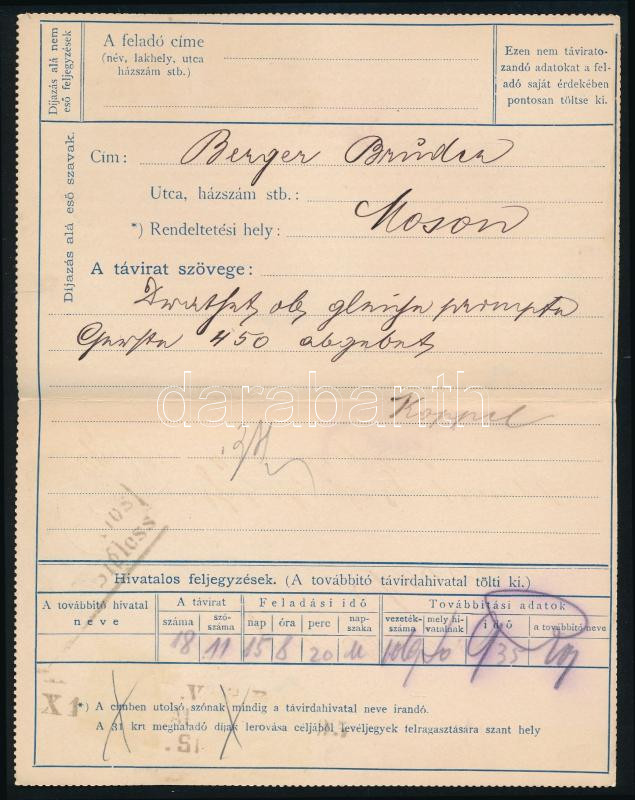 Díjazás alá nem
eső feljegyzések
A feladó címe
(név, lakhely, utca
házszám stb.)
Ezen nem távirato-
zandó adatokat a fel-
adó saját érdekében
pontosan töltse ki.
Díjazás alá eső szavak.
Cím: Berger Brüder
Utca, házszám stb.:
*) Rendeltetési hely: Moson
A távirat szövege:
Drathet ob gleiche prompte
Gerste 450 abgebet
darabanth.com
Koppel
Hivatalos feljegyzések. (A továbbító távirdahivatal tölti ki.)
A továbbító hivatal
neve
A távirat
száma
szó-
száma
Feladási idő
nap
óra
perc
nap-
szaka
Továbbítási adatok
vezeték-
száma
mely hi-
vatalnak
idő
a továbbító neve
18 11 15 8 20 35
X 1
*) A címben utolsó szónak mindig a távirdahivatal neve írandó.
A 31 krt meghaladó díjak lerovása céljából levéljegyek felragasztására szant hely